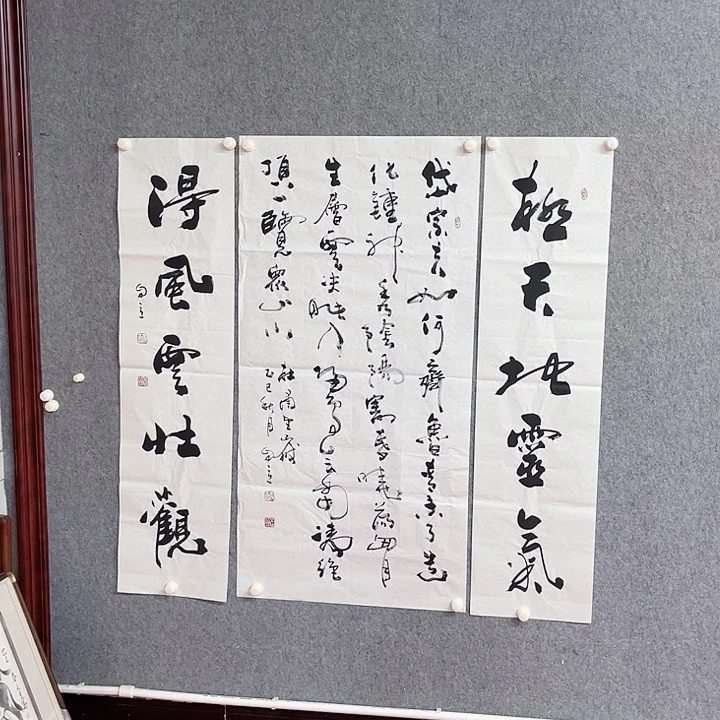 極天地靈氣
岱宗夫如何齊魯青未了造
化鍾神秀陰陽割昏曉蕩胸
生層雲決眥入歸鳥會當凌絕
頂一覽眾山小
杜甫望嶽
乙巳秋月
得風雲壯觀